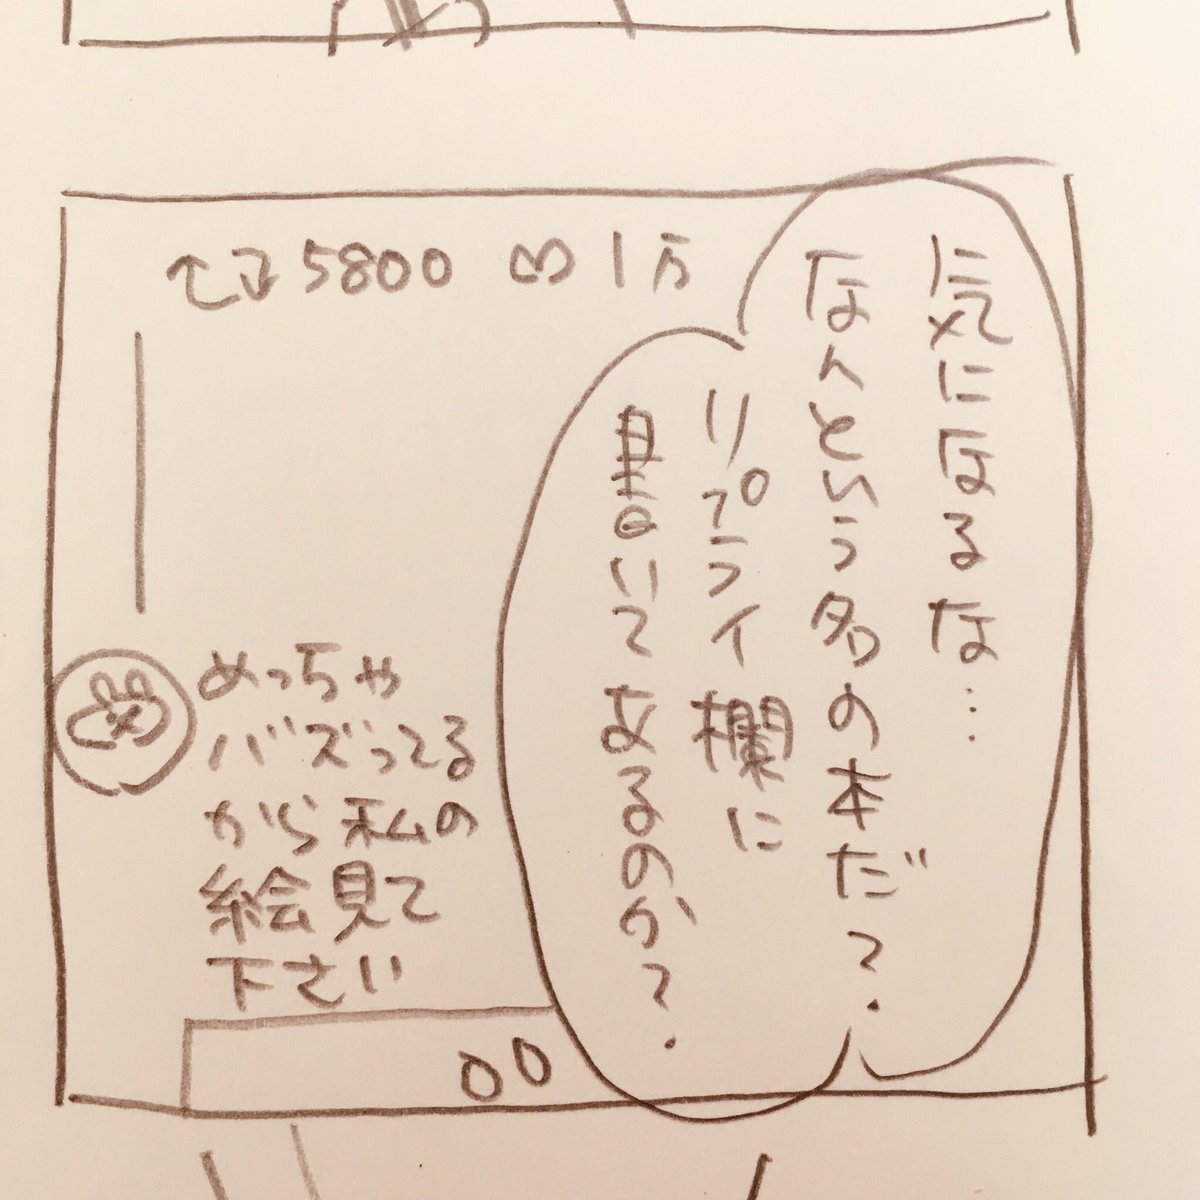 5800 ♡1万
気になるな…
なんという名の本だ?
リプライ欄に
書いてあるのか?
めっちゃ
バズってる
から私の
絵見て
下さい